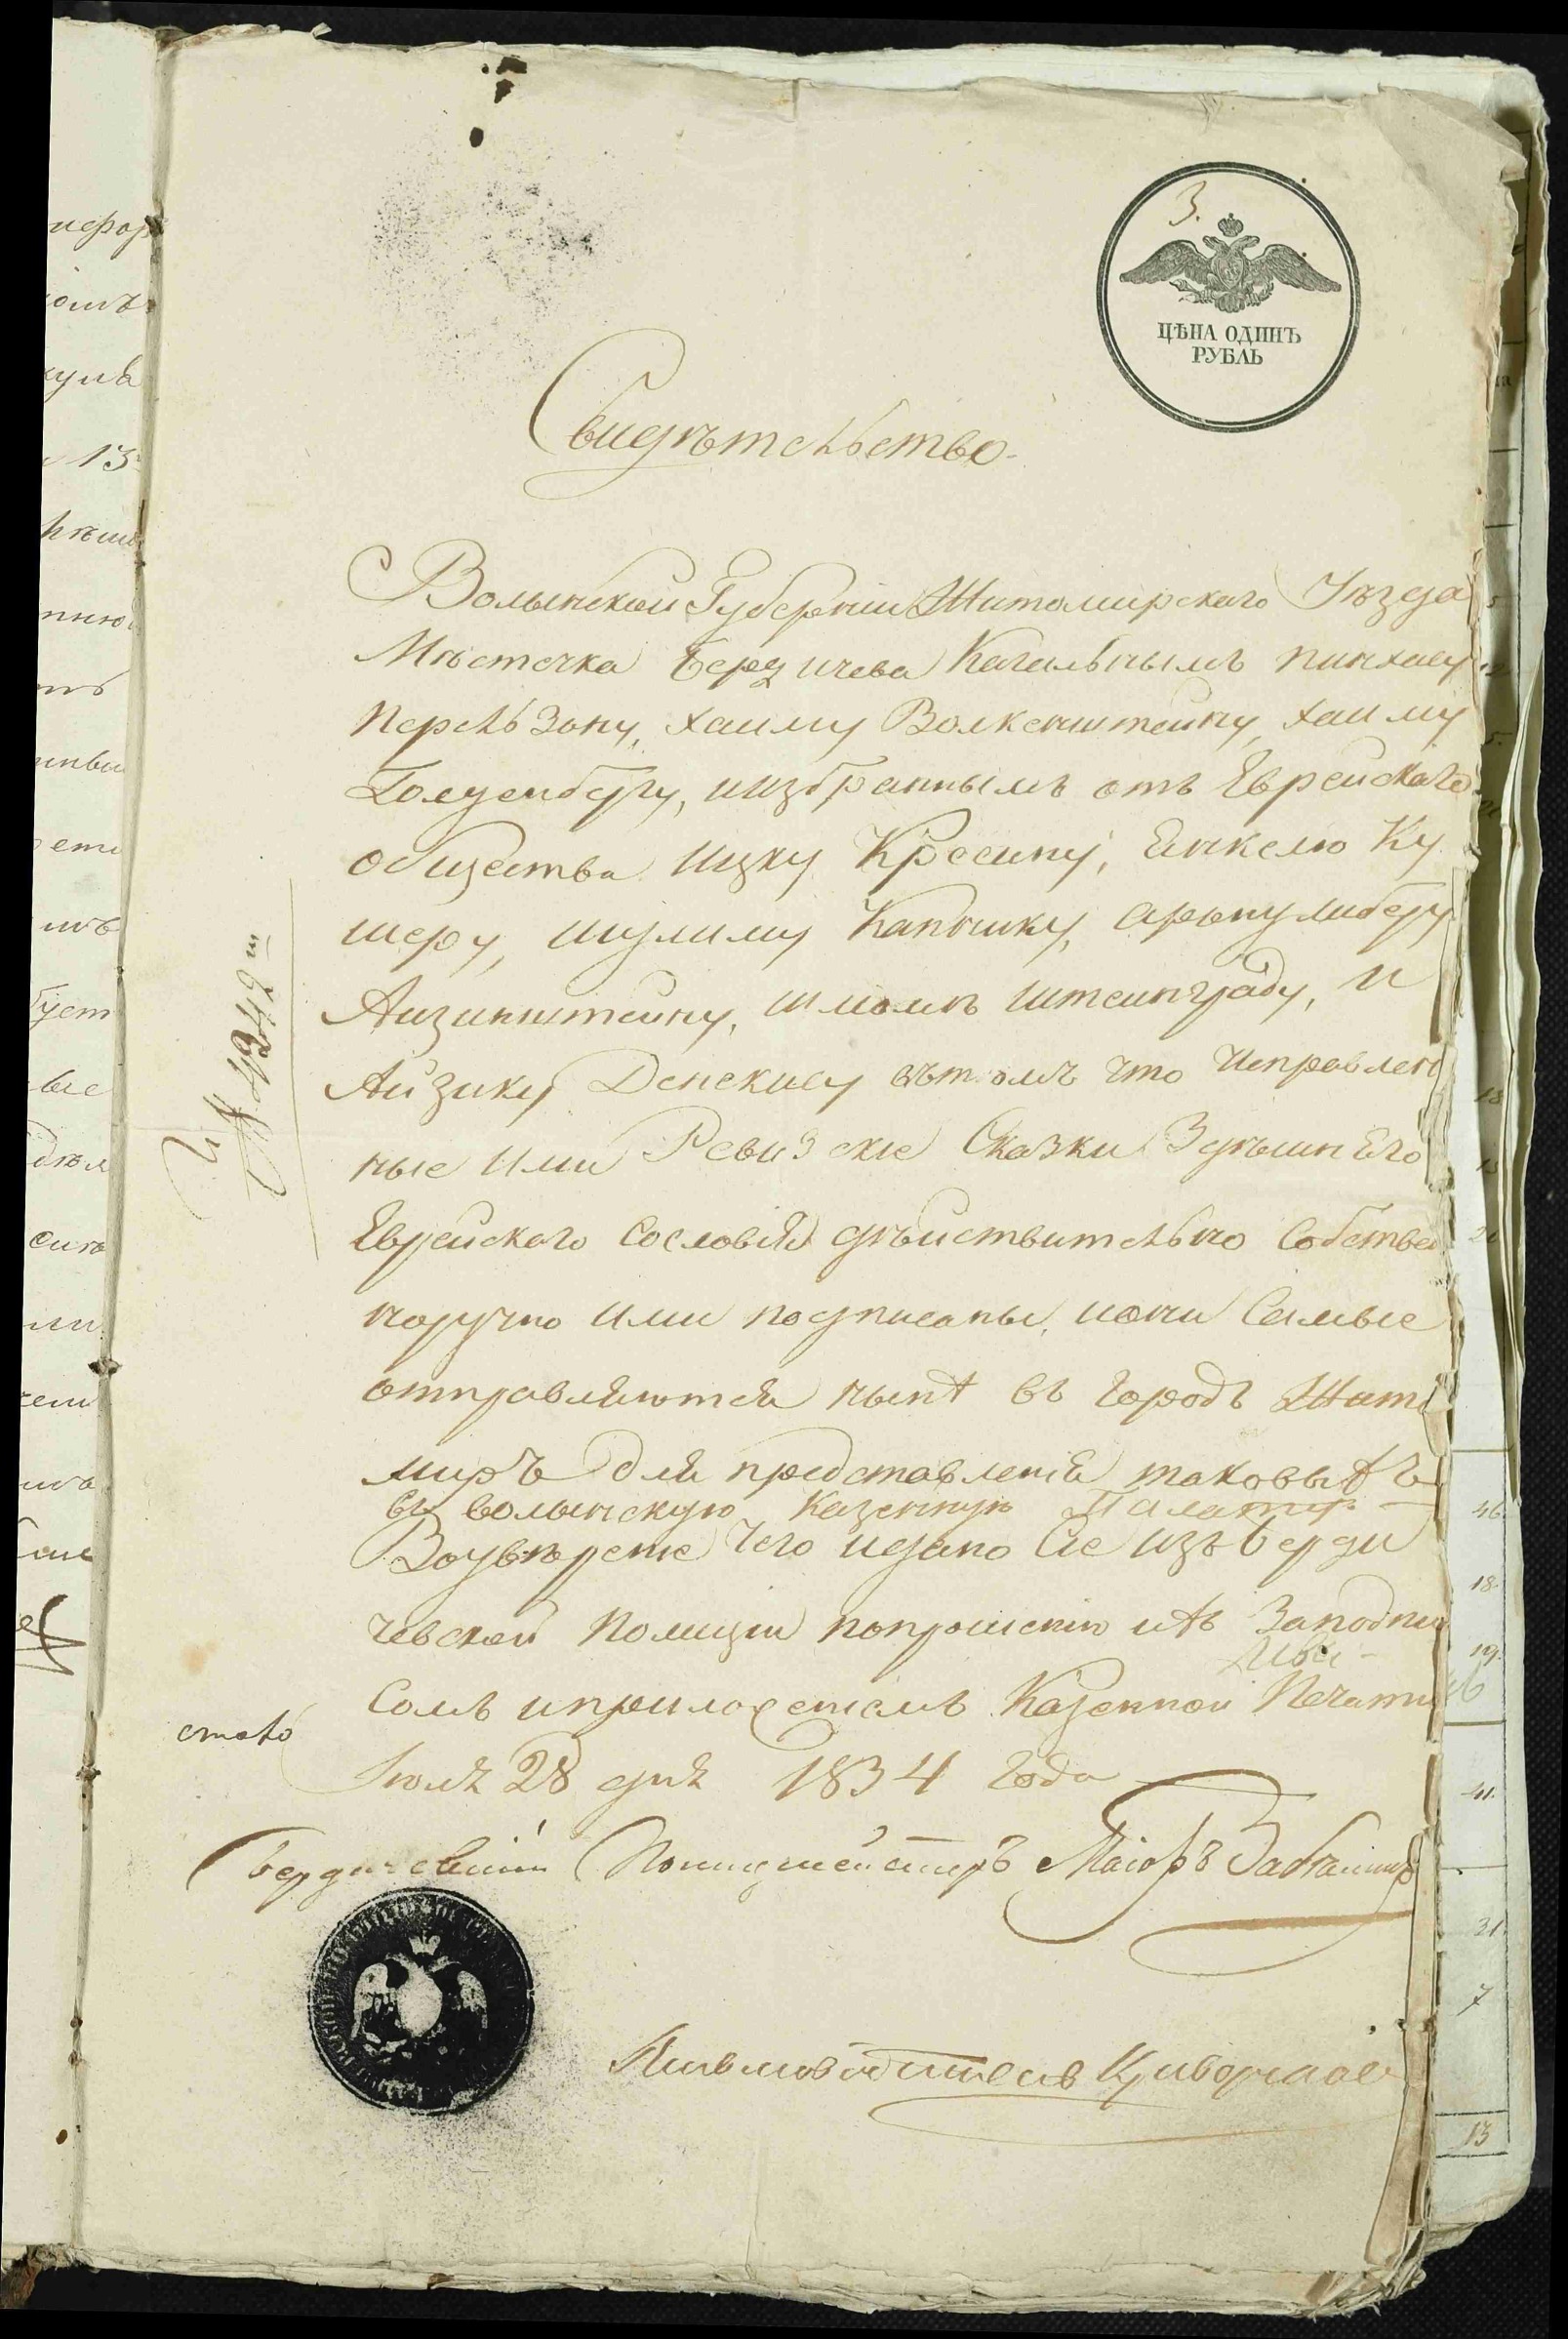 3.
ЦѢНА ОДИНЪ
РУБЛЬ
Свидѣтельство
Волынской Губерніи Житомирскаго Уѣзда
Мѣстечка Бердичева Кагальнымъ пинхасу
перельзону, хаиму Волкенштеину, хаиму
Голденбергу, и избраннымъ отъ Еврейскаго
общества ицку Кресину, Енкелю Ку
шеру, шулиму Капнику, арону либеру
Аизинштейну, шмолѣ штеинграду, и
Айзику Денскису въ томъ что Исправлен
ные Ими Ревизскіе Сказки Здѣшнего
Еврейскаго Сословія дѣйствительно Собствен
норучно Ими подписаны, иони Самые
отправляются нынѣ въ городъ Жито
миръ для представленія таковыхъ
въ волынскую Казенную Палату
Воувѣреніе чего издано Сіе изъ берди
чевской Полиціи попрошенію ихъ Заподпи
Сомъ иприложеніемъ Казенной Печати
Іюля 28 дня 1834 года
бердичевскій Полицмейстеръ Маіоръ
Письмоводитель
№ 4242